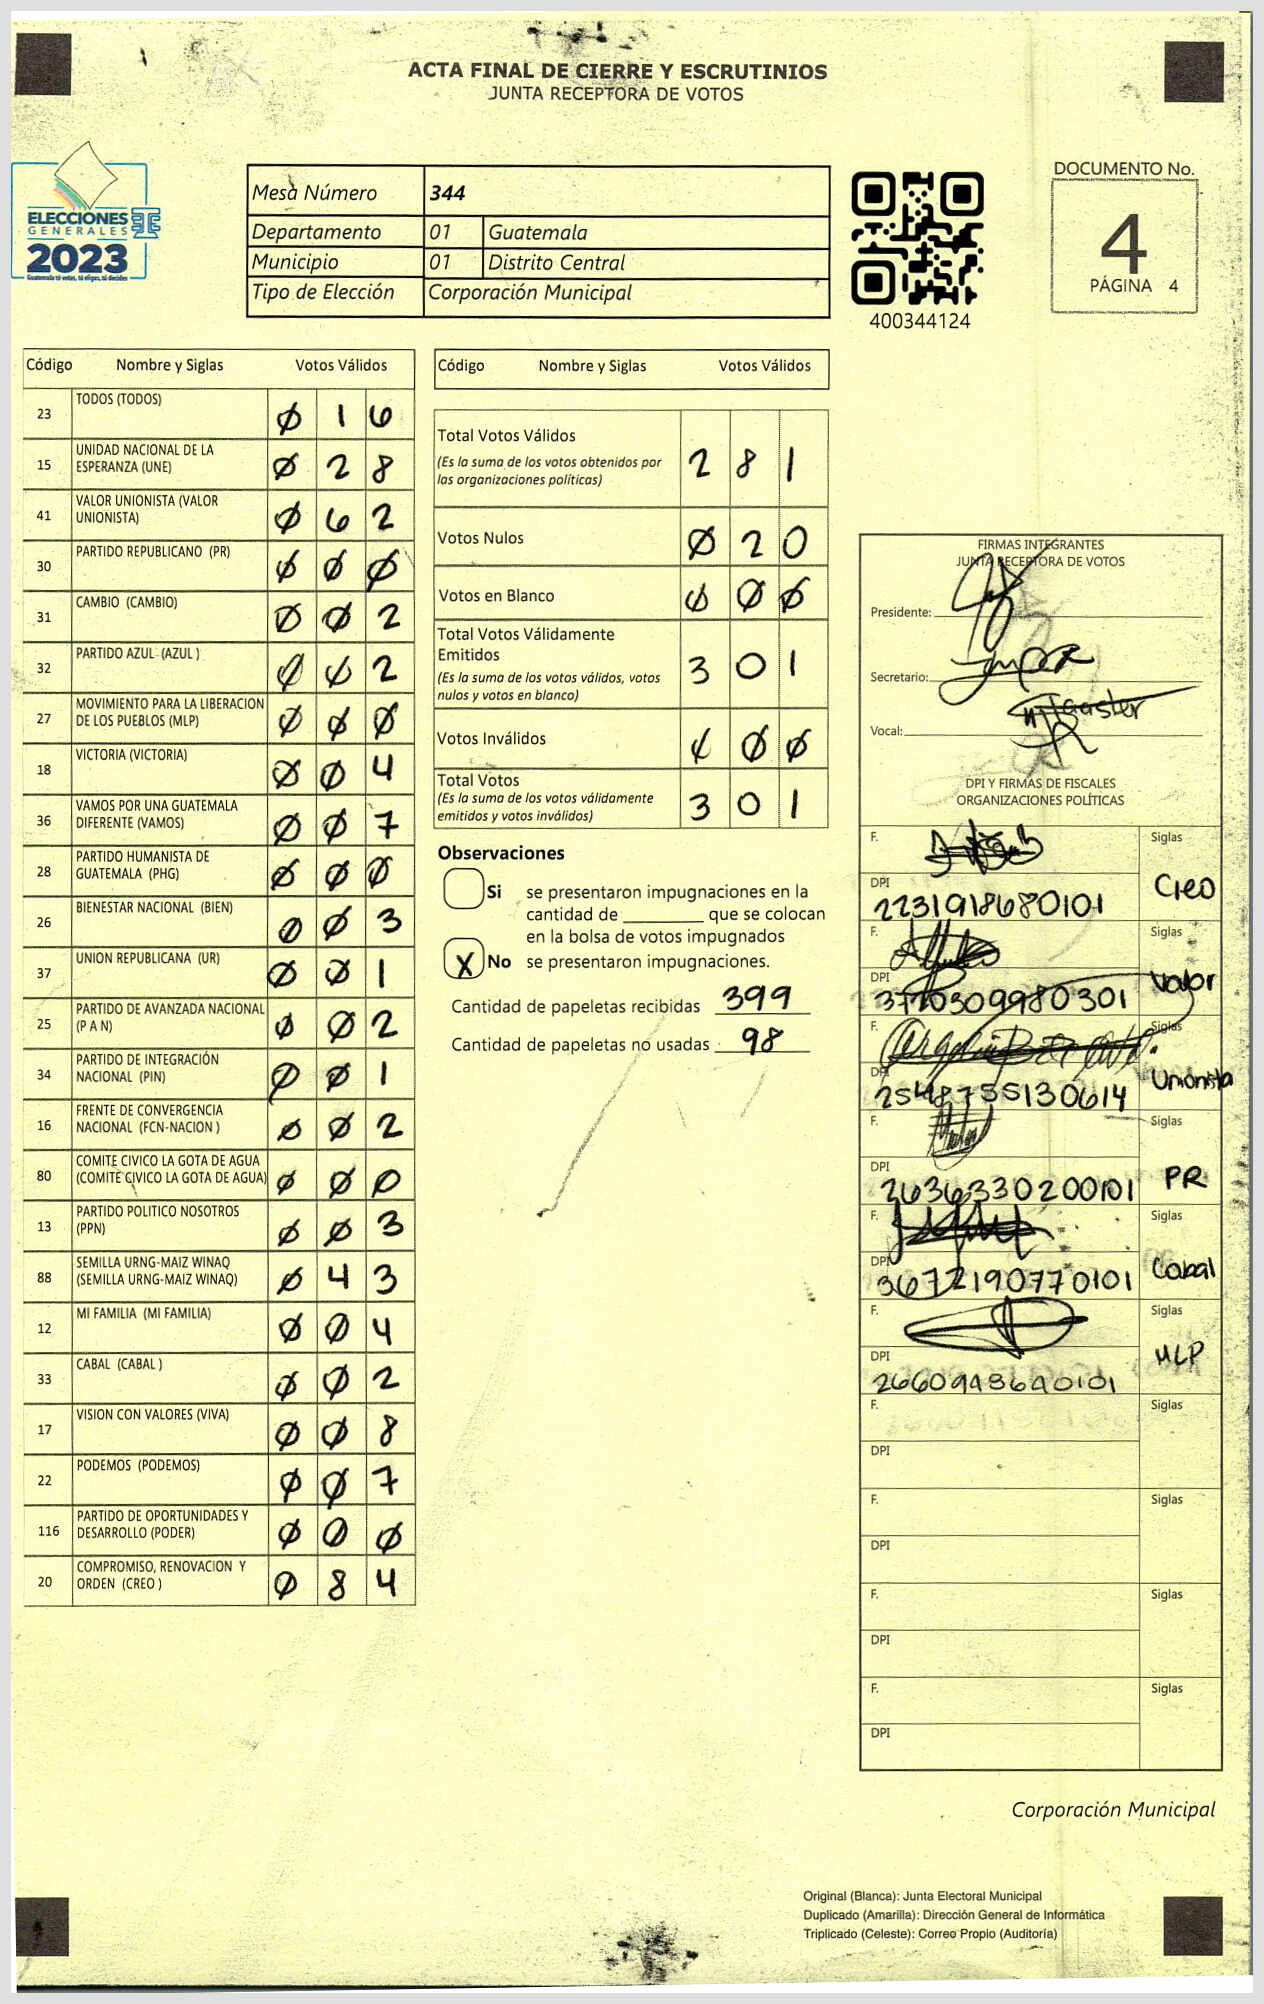 ACTA FINAL DE CIERRE Y ESCRUTINIOS
JUNTA RECEPTORA DE VOTOS
ELECCIONES
GENERALES
2023
Guatemala tú votas, tú eliges, tú decides
Mesa Número 344
Departamento 01 Guatemala
Municipio 01 Distrito Central
Tipo de Elección Corporación Municipal
400344124
DOCUMENTO No.
4
PÁGINA 4
Código Nombre y Siglas Votos Válidos
23 TODOS (TODOS) 0 1 6
15 UNIDAD NACIONAL DE LA ESPERANZA (UNE) 0 2 8
41 VALOR UNIONISTA (VALOR UNIONISTA) 0 6 2
30 PARTIDO REPUBLICANO (PR) 0 0 0
31 CAMBIO (CAMBIO) 0 0 2
32 PARTIDO AZUL (AZUL ) 0 0 2
27 MOVIMIENTO PARA LA LIBERACION DE LOS PUEBLOS (MLP) 0 0 0
18 VICTORIA (VICTORIA) 0 0 4
36 VAMOS POR UNA GUATEMALA DIFERENTE (VAMOS) 0 0 7
28 PARTIDO HUMANISTA DE GUATEMALA (PHG) 0 0 0
26 BIENESTAR NACIONAL (BIEN) 0 0 3
37 UNION REPUBLICANA (UR) 0 0 1
25 PARTIDO DE AVANZADA NACIONAL (P A N) 0 0 2
34 PARTIDO DE INTEGRACIÓN NACIONAL (PIN) 0 0 1
16 FRENTE DE CONVERGENCIA NACIONAL (FCN-NACION ) 0 0 2
80 COMITE CIVICO LA GOTA DE AGUA (COMITE CIVICO LA GOTA DE AGUA) 0 0 0
13 PARTIDO POLITICO NOSOTROS (PPN) 0 0 3
88 SEMILLA URNG-MAIZ WINAQ (SEMILLA URNG-MAIZ WINAQ) 0 4 3
12 MI FAMILIA (MI FAMILIA) 0 0 4
33 CABAL (CABAL ) 0 0 2
17 VISION CON VALORES (VIVA) 0 0 8
22 PODEMOS (PODEMOS) 0 0 7
116 PARTIDO DE OPORTUNIDADES Y DESARROLLO (PODER) 0 0 0
20 COMPROMISO, RENOVACION Y ORDEN (CREO ) 0 8 4
Código Nombre y Siglas Votos Válidos
Total Votos Válidos 2 8 1
(Es la suma de los votos obtenidos por
las organizaciones políticas)
Votos Nulos 0 2 0
Votos en Blanco 0 0 0
Total Votos Válidamente
Emitidos 3 0 1
(Es la suma de los votos válidos, votos
nulos y votos en blanco)
Votos Inválidos 0 0 0
Total Votos 3 0 1
(Es la suma de los votos válidamente
emitidos y votos inválidos)
Observaciones
Si se presentaron impugnaciones en la
cantidad de ________ que se colocan
en la bolsa de votos impugnados
X No se presentaron impugnaciones.
Cantidad de papeletas recibidas 399
Cantidad de papeletas no usadas 98
FIRMAS INTEGRANTES
JUNTA RECEPTORA DE VOTOS
Presidente:
Secretario:
Vocal:
DPI Y FIRMAS DE FISCALES
ORGANIZACIONES POLÍTICAS
F. Siglas
DPI 2231918680101 Creo
F. Siglas
DPI 3720309980301 Valor
F. Siglas
DPI 2548755130614 Unionista
F. Siglas
DPI 2636330200101 PR
F. Siglas
DPI 3672190770101 Cabal
F. Siglas
DPI 2660948640101 MLP
F. Siglas
DPI
F. Siglas
DPI
F. Siglas
DPI
F. Siglas
DPI
Corporación Municipal
Original (Blanca): Junta Electoral Municipal
Duplicado (Amarilla): Dirección General de Informática
Triplicado (Celeste): Correo Propio (Auditoría)